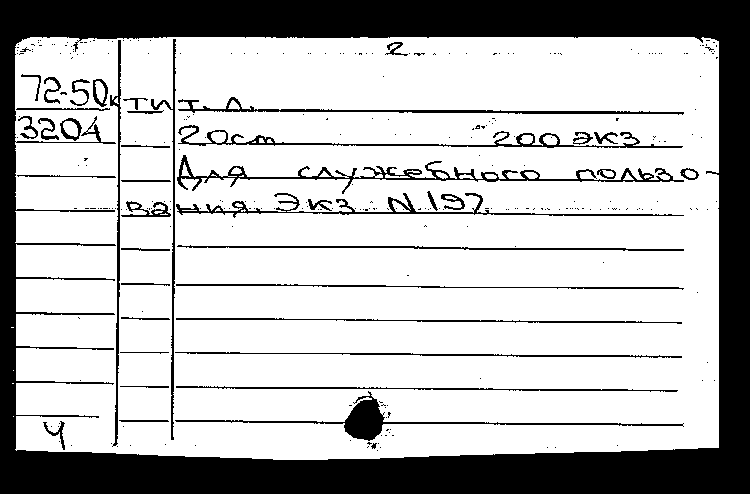 2
72-50к тит. л.
3204 20см 200 экз.
Для служебного пользо-
вания. Экз. N 197.
4